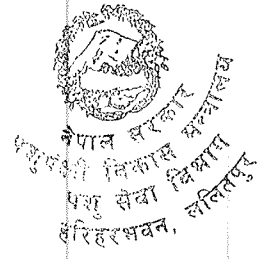 नेपाल सरकार
पशुपंक्षी विकास मन्त्रालय
पशु सेवा विभाग
हरिहरभवन, ललितपुर